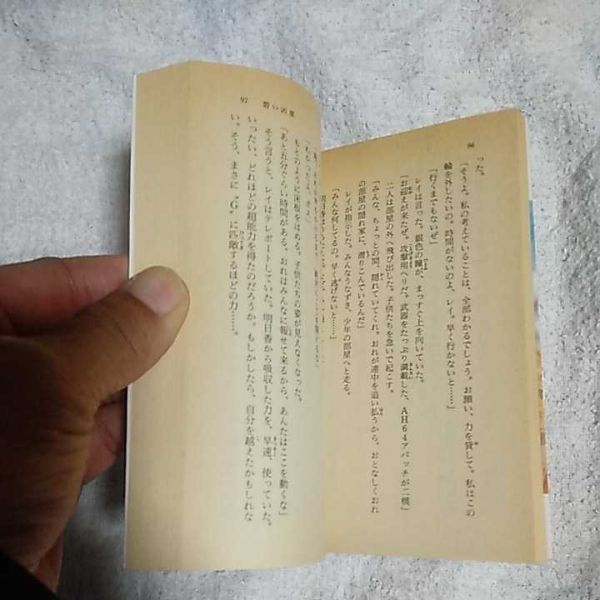 96
った。
「そうよ。私の考えていることは、全部わかるでしょう。お願い、力を貸して。私はこの
輪を外したいの。時間がないのよ、レイ。早く行かないと……」
「行くまでもないぜ」
レイは言った。銀色の瞳が、まっすぐ上を向いていた。
「お迎えが来たぜ。攻撃用ヘリだ。武器をたっぷり満載した、AH64アパッチが二機」
二人は部屋の外へ飛び出した。子供たちを急いで起こす。
「みんな、ちょっとの間、隠れていてくれ。おれが連中を追い払うから、おとなしくおれ
の部屋の隠れ家に、滑りこんでいるんだ」
レイが指示した。みんなうなずき、少年の部屋へと走る。
「みんな何してるの。早く逃げないと……」
97
碧い凶星
もとのように床板をはめる。子供たちの姿が見えなくなった。
「あと五分ぐらい時間がある。おれはみんなに報せて来るから、あんたはここを動くな」
そう言うと、レイはテレポートしていた。明日香から吸収した力を、早速、使っていた。
いったい、どれほどの超能力を得たのだろうか。もしかしたら、自分を越えたかもしれな
い。そう、まさに"G"に匹敵するほどの力……。